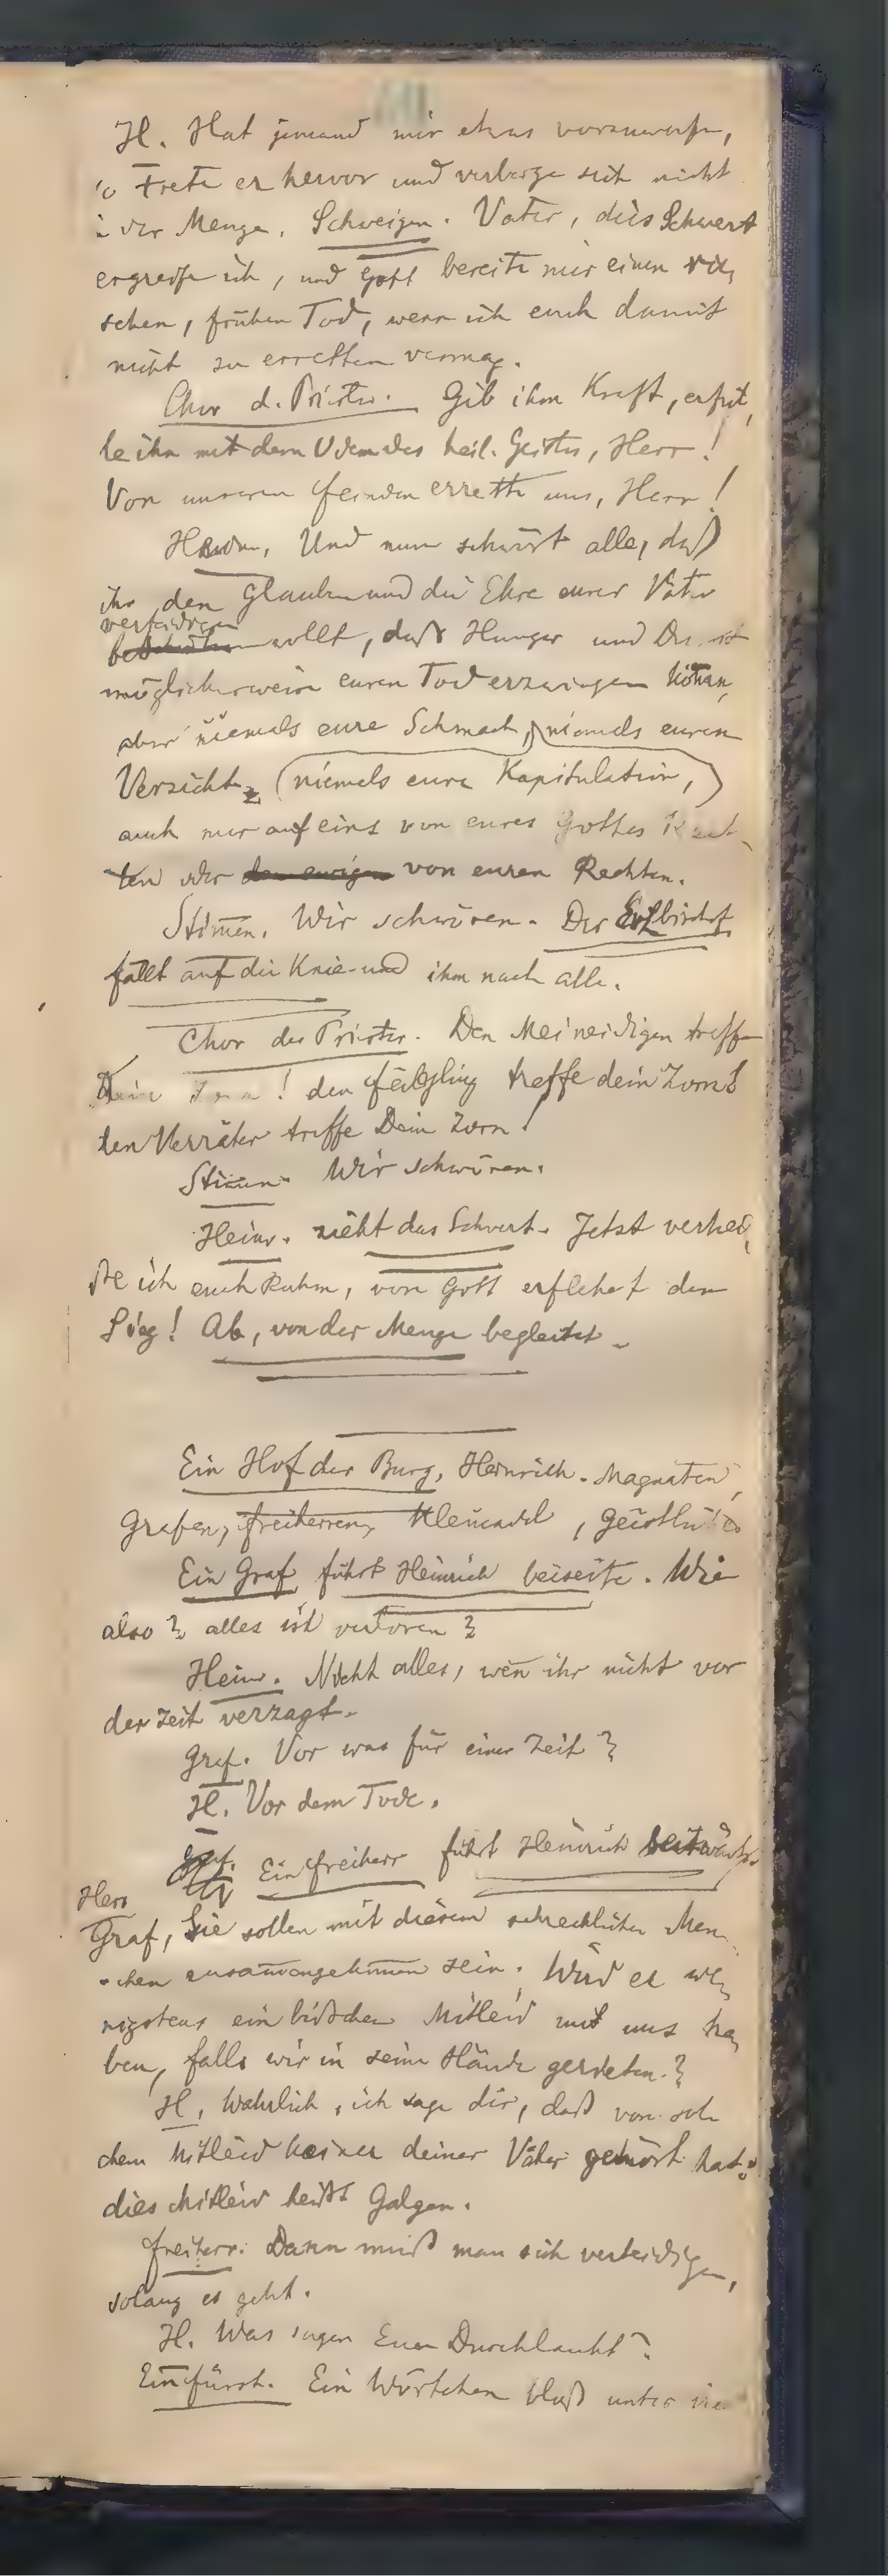 H. Hat jemand mir etwas vorzuwerfen,
so trete er hervor und verberge sich nicht
in der Menge. Schweigen. Vater, dies Schwert
ergreife ich, und Gott bereite mir einen ra,
schen, frühen Tod, wenn ich euch damit
nicht zu erretten vermag.
Chor d. Priester. Gib ihm Kraft, erfül,
le ihn mit dem Odem des heil. Geistes, Herr!
Von unseren Feinden errette uns, Herr!
Heinr. Und nun schwört alle, daß
ihr den Glauben und die Ehre eurer Väter
verteidigen
wollt, daß Hunger und Durst
möglicherweise euren Tod erzwingen können,
aber niemals eure Schmach, niemals euren
Verzicht, (niemels eure Kapitulation,)
auch nur auf eins von eures Gottes Rech-
ten oder den ewigen von euren Rechten.
Stimen. Wir schwören. Der Erzbischof
fällt auf die Knie und ihm nach alle.
Chor der Priester. Den Meineidigen treffe
Dein Zorn! den Feigling treffe dein Zorn!
den Verräter treffe Dein Zorn!
Stimen. Wir schwören.
Heinr. zieht das Schwert. Jetzt verhei,
ße ich euch Ruhm, von Gott erflehet den
Sieg! Ab, von der Menge begleitet.
Ein Hof der Burg, Heinrich. Magnaten,
Grafen, Freiherren, Kleinadel, Geistliche
Ein Graf führt Heinrich beiseite. Wie
also? alles ist verloren?
Heinr. Nicht alles, wen̄ ihr nicht vor
der Zeit verzagt.
Graf. Vor was für einer Zeit?
H. Vor dem Tode.
Graf. Ein Freiherr führt Heinrich seitwärts.
Herr
Graf, Sie sollen mit diesem schrecklichen Men
schen zusam̄engekom̄en sein. Wird er we,
nigstens ein bißchen Mitleid mit uns ha,
ben, falls wir in seine Hände gerieten?
H. Wahrlich, ich sage dir, daß von sol
chem Mitleid keiner deiner Väter gehört hat:
dies Mitleid heißt Galgen.
Freiherr. Dann muß man sich verteidigen,
solang es geht.
H. Was sagen Euer Durchlaucht?
Ein Fürst. Ein Wörtchen bloß unter vier